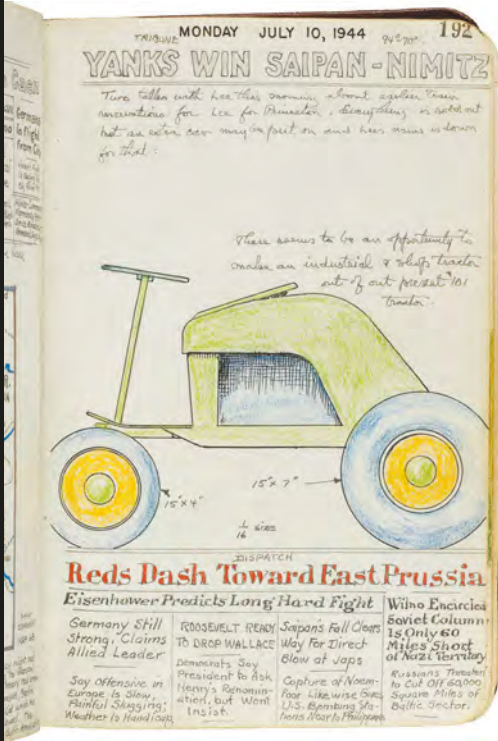 TRIBUNE
MONDAY JULY 10, 1944
94° 70°
192
YANKS WIN SAIPAN - NIMITZ
Two talks with Lee this morning about earlier train
reservations for Lee for Princeton. Everything is sold out
but an extra car may be put on and Lee's name is down
for that.
There seems to be an opportunity to
make an industrial & shop tractor
out of our present #101
tractor.
15" x 4"
15" x 7"
1/16 size
DISPATCH
Reds Dash Toward East Prussia
Eisenhower Predicts Long Hard Fight
Germany Still
Strong, Claims
Allied Leader
Say Offensive in
Europe Is Slow,
Painful Slugging;
Weather Is Handicap
ROOSEVELT READY
TO DROP WALLACE
Democrats Say
President to Ask
Henry's Renomin-
ation, but Won't
Insist.
Saipan's Fall Clears
Way For Direct
Blow at Japs
Capture of Noem-
foor Likewise Gives
U.S. Bombing Sta-
tions Near to Philippines
Wilno Encircled
Soviet Column
Is Only 60
Miles Short
of Nazi Territory
Russians Threaten
to Cut Off 60,000
Square Miles of
Baltic Sector.